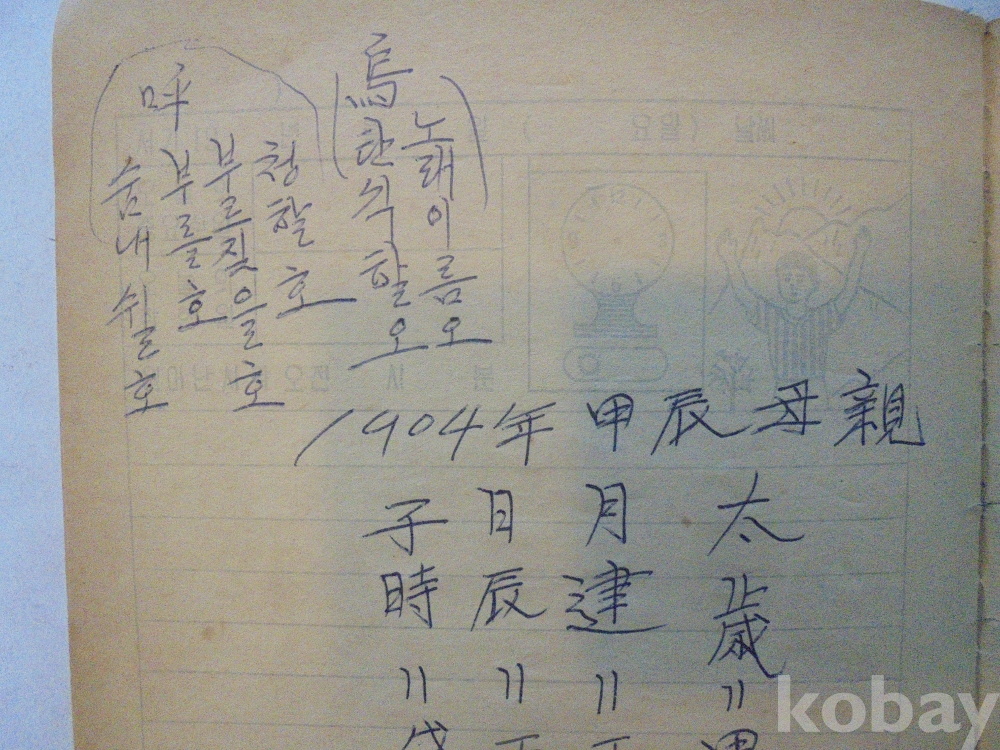 烏
노래이름 오
탄식할 오
呼
청할 호
부르짖을 호
부를 호
숨내쉴 호
1904年 甲辰 母親
太歲 〃
月建 〃
日辰 〃
子時 〃
kobay